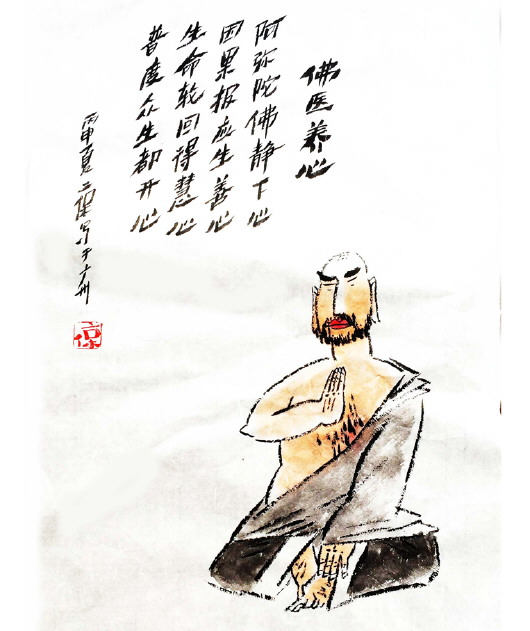 佛医养心
阿弥陀佛静下心
因果报应生善心
生命轮回得慧心
普度众生都开心
丙申夏二保写于广州